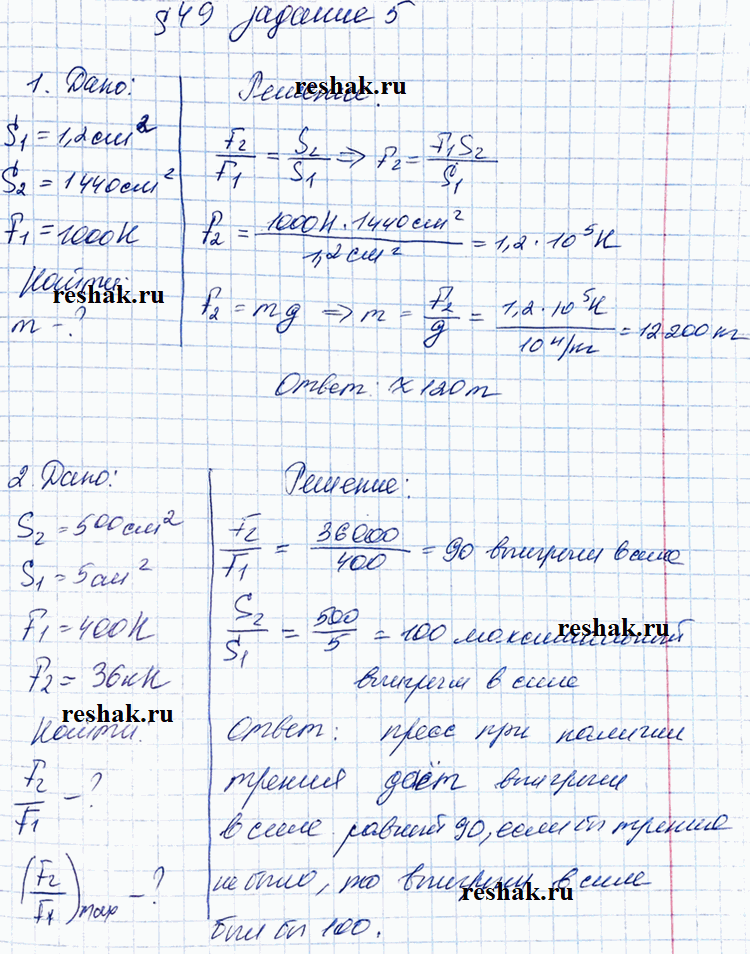 §49 задание 5
1. Дано:
S₁ = 1,2 см²
S₂ = 1440 см²
F₁ = 1000 Н
Найти:
m - ?
Решение:
F₂/F₁ = S₂/S₁ ⟹ F₂ = F₁S₂/S₁
F₂ = 1000 Н · 1440 см² / 1,2 см² = 1,2 · 10⁵ Н
F₂ = mg ⟹ m = F₂/g = 1,2 · 10⁵ Н / 10 Н/кг = 12200 кг
Ответ: ≈ 120 т
2 Дано:
S₂ = 500 см²
S₁ = 5 см²
F₁ = 400 Н
F₂ = 36 кН
Найти:
F₂/F₁ - ?
(F₂/F₁)max - ?
Решение:
F₂/F₁ = 36000/400 = 90 выигрыш в силе
S₂/S₁ = 500/5 = 100 максимальный
выигрыш в силе
Ответ: пресс при наличии
трения даёт выигрыш
в силе равный 90, если бы трения
не было, то выигрыш в силе
был бы 100.
reshak.ru
reshak.ru
reshak.ru
reshak.ru
reshak.ru